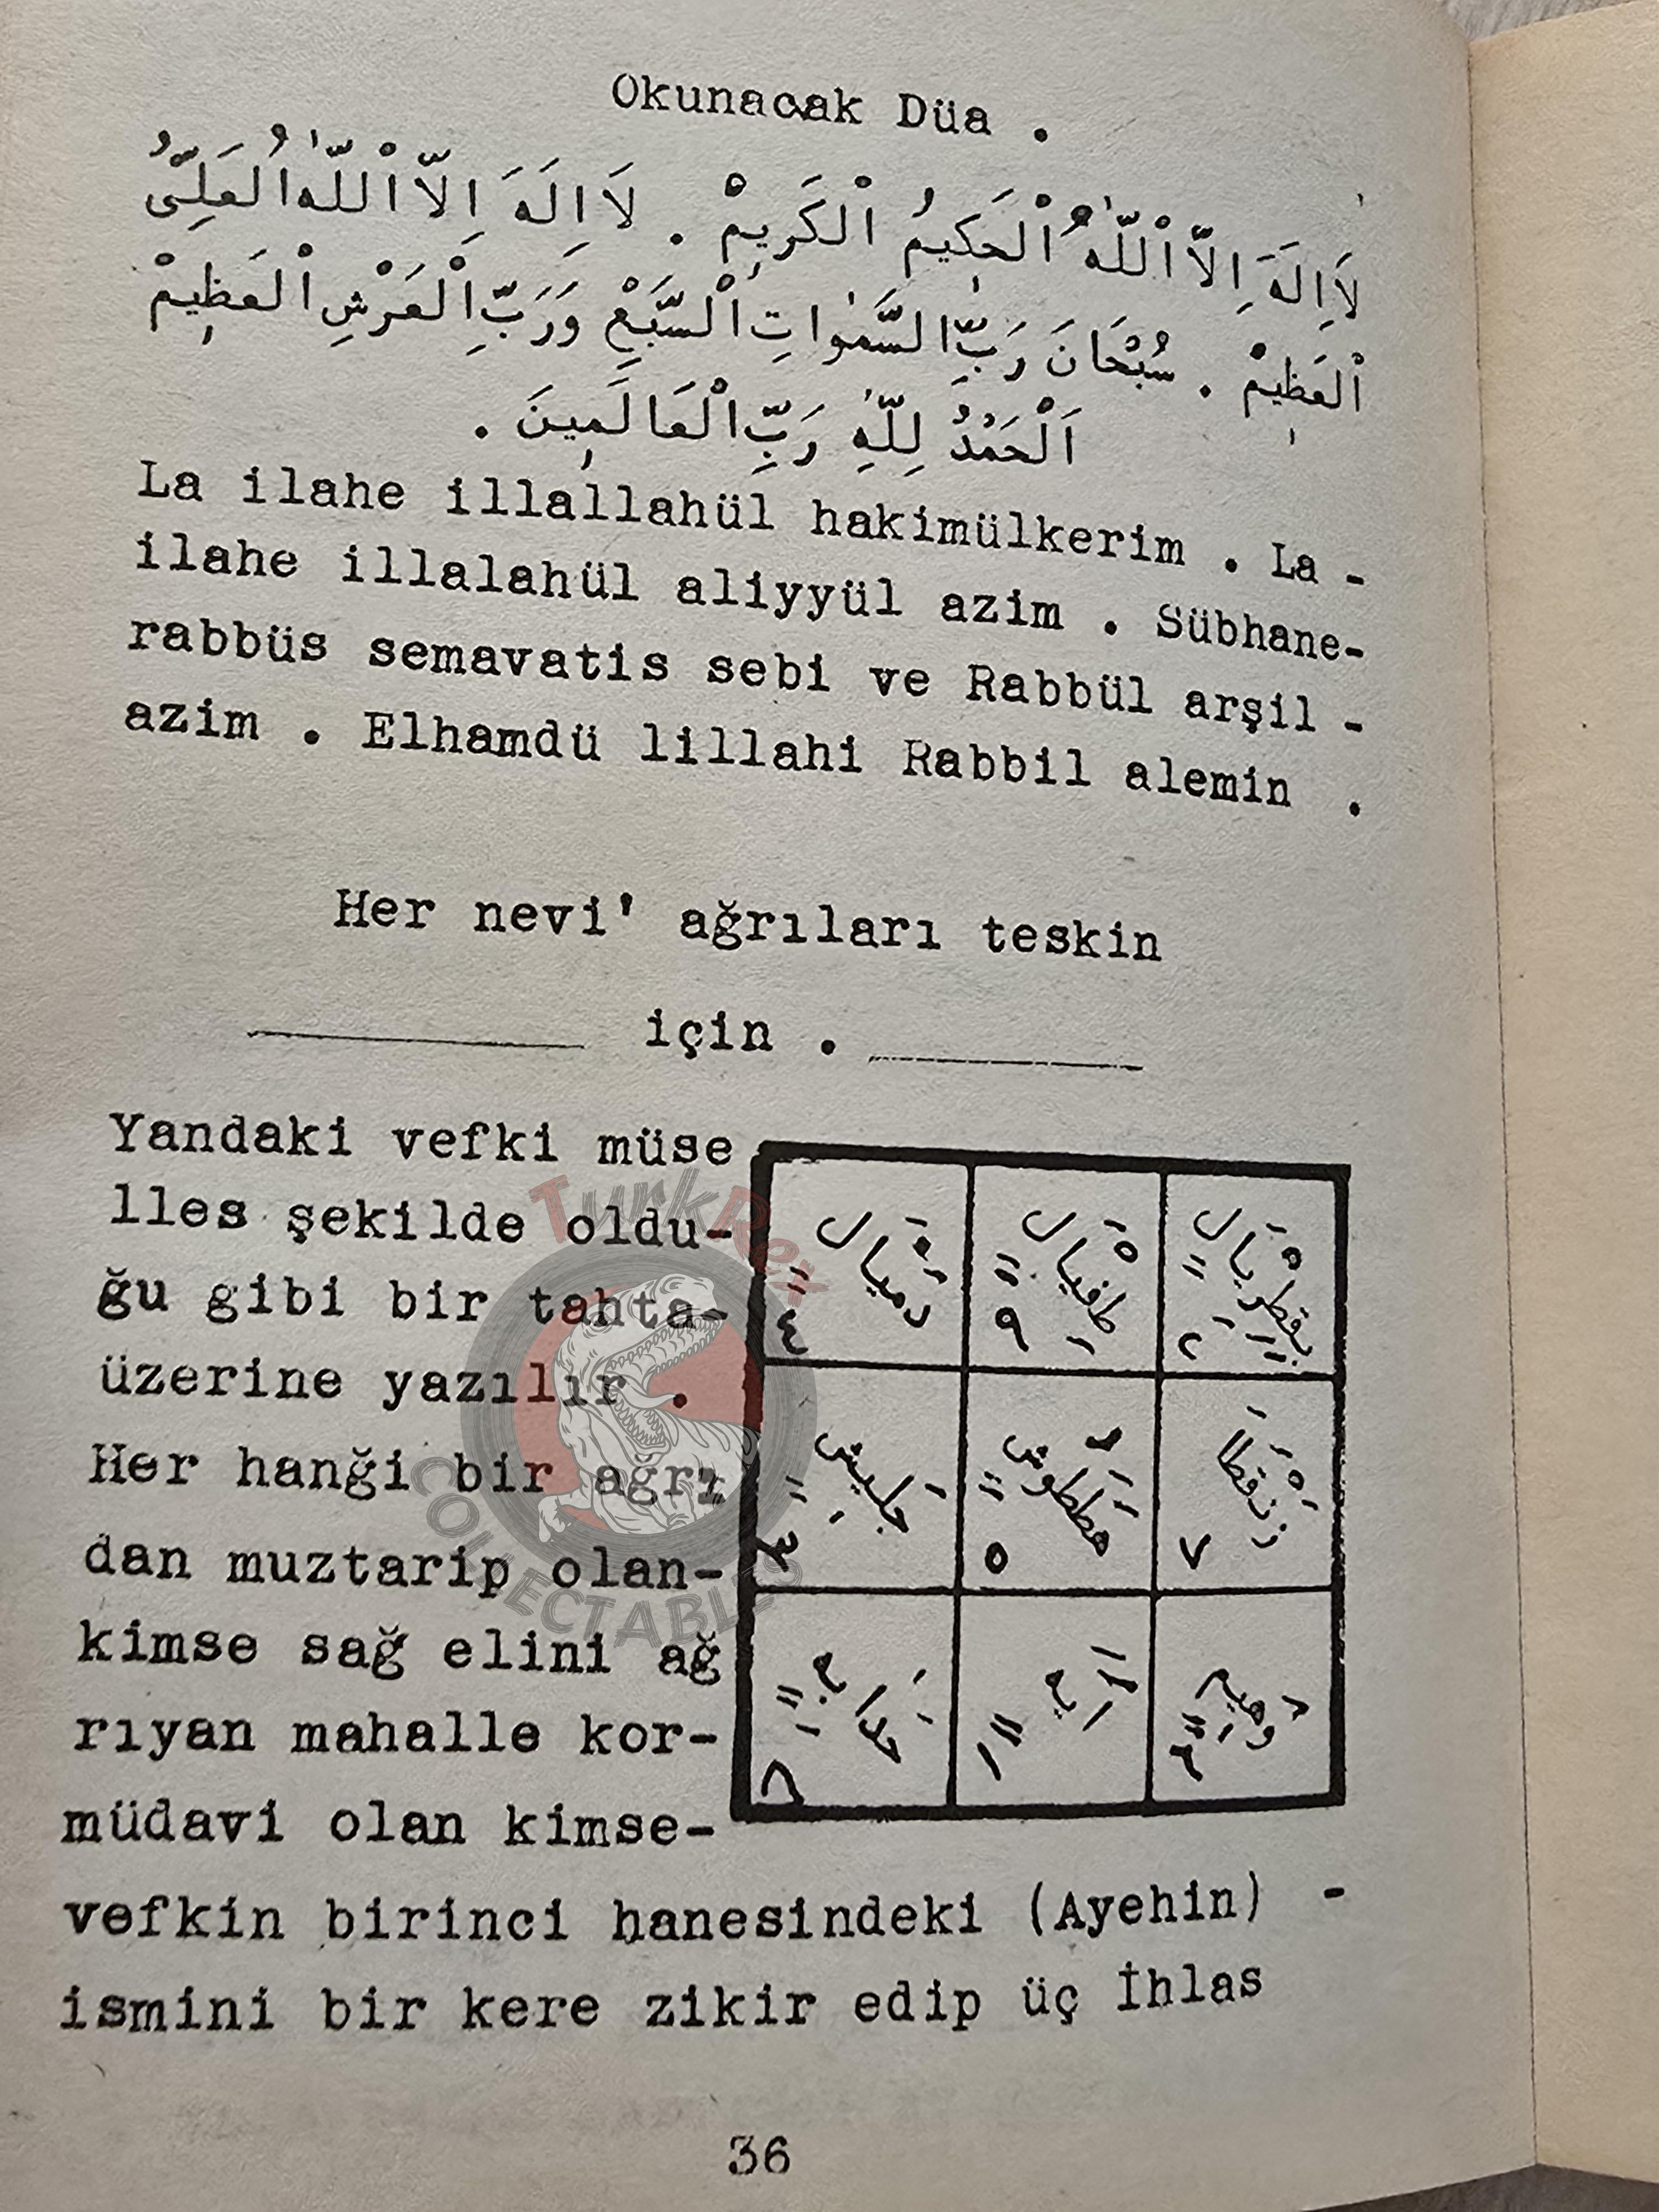 Okunacak Düa .
لَا اِلَهَ اِلَّا اْللّٰهُ اْلْحَكِيمُ اْلْكَرِيمْ . لَا اِلَهَ اِلَّا اْللّٰهُ الْعَلِىُّ
اْلْعَظِيمْ . سُبْحَانَ رَبِّ السَّمٰوَاتِ اْلسَّبْعِ وَرَبِّ اْلْعَرْشِ اْلْعَظِيمْ
اَلْحَمْدُ لِلّٰهِ رَبِّ الْعَالَمِينَ .
La ilahe illallahül hakimülkerim . La -
ilahe illalahül aliyyül azim . Sübhane-
rabbüs semavatis sebi ve Rabbül arşil -
azim . Elhamdü lillahi Rabbil alemin .
Her nevi' ağrıları teskin
için .
Yandaki vefki müse
lles şekilde oldu-
ğu gibi bir tahta-
üzerine yazılır .
Her hanği bir agrı
dan muztarip olan-
kimse sağ elini ağ
rıyan mahalle kor-
müdavi olan kimse-
vefkin birinci hanesindeki (Ayehin) -
ismini bir kere zikir edip üç İhlas
٤ ٩ ٢
٣ ٥ ٧
٨ ١ ٦
TurkRex
COLLECTABLES
36